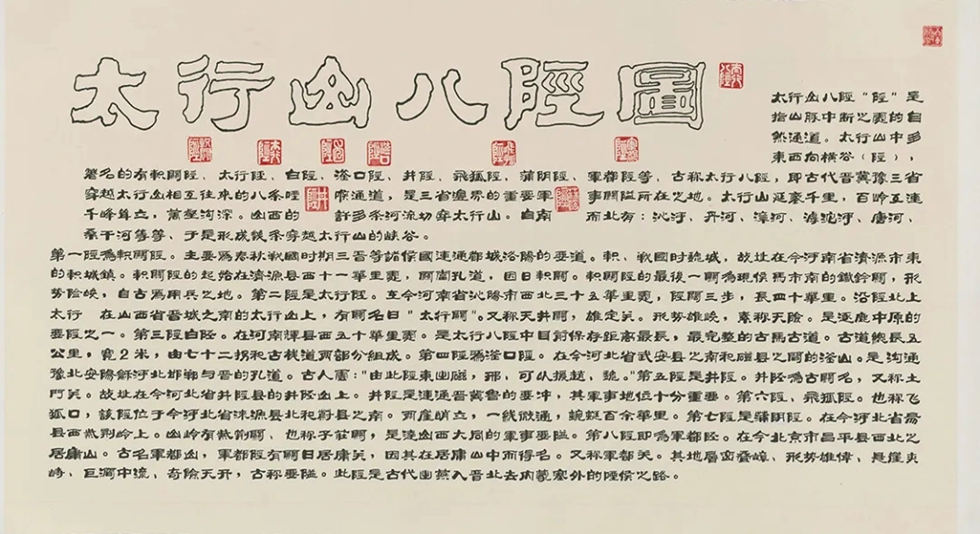 太行山八陘圖
太行山八陘"陘"是
指山脉中断之處的自
然通道。太行山中多
東西向横谷（陘），
著名的有軹關陘、太行陘、白陘、滏口陘、井陘、飛狐陘、蒲陰陘、軍都陘等、古称太行八陘，即古代晋冀豫三省
穿越太行山相互往來的八条 喉通道，是三省邊界的重要軍事關隘所在之地。太行山延豪千里，百岭互連
千峰耸立，萬壑沟深。山西的許多条河流切穿太行山。自南而北有：沁河、丹河、漳河、滹沱河、唐河、
桑干河等等、于是形成幾条穿越太行山的峡谷。
第一陘為軹關陘。主要為春秋戰國時期三晋等諸侯國連通都城洛陽的要道。軹、戰國时魏城，故址在今河南省濟源市東
的軹城鎮。軹關陘的起始在濟源县西十一華里處，關當孔道，因曰軹關。軹關陘的最後一關為現侯馬市南的鐵鈴關，形
势险峡，自古為用兵之地。第二陘是太行陘。在今河南省沁陽市西北三十五華里處，陘闊三步，長四十華里。沿陘北上
太行 在山西省晋城之南的太行山上，有關名曰"太行關"。又称天井關，雄定关。形势雄峡，素称天险。是逐鹿中原的
要陘之一。第三陘白陘。在河南輝县西五十華里處。是太行八陘中目前保存距离最長，最完整的古馬古道。古道總長五
公里，宽2米，由七十二拐和古栈道两部分組成。第四陘為滏口陘。在今河北省武安县之南和磁县之間的滏山。是沟通
豫北安陽穌河北邯鄲与晋的孔道。古人雲："由此陘東出磁，邢、可以援趙、魏。"第五陘是井陘。井陘為古關名，又称土
門关。故址在今河北省井陘县的井陘山上。井陘是連通晋冀鲁的要冲，其軍事地位十分重要。第六陘、飛狐陘。也称飞
狐口，該陘位于今河北省淶源县北和蔚县之南。两崖峭立，一线微通，蜿蜒百余華里。第七陘是蒲陰陘。在今河北省易
县西紫荆岭上。山岭有紫荆關、也称子莊關，是達山西大同的軍事要隘。第八陘即為軍都陘。在今北京市昌平县西北之
居庸山。古名軍都山，軍都陘有關曰居庸关，因其在居庸山中而得名。又称軍都关。其地層峦叠嶂、形势雄偉、悬崖夹
峙、巨澗中流、奇險天开，古称要隘。此陘是古代出燕入晋北去内蒙塞外的陘侯之路。